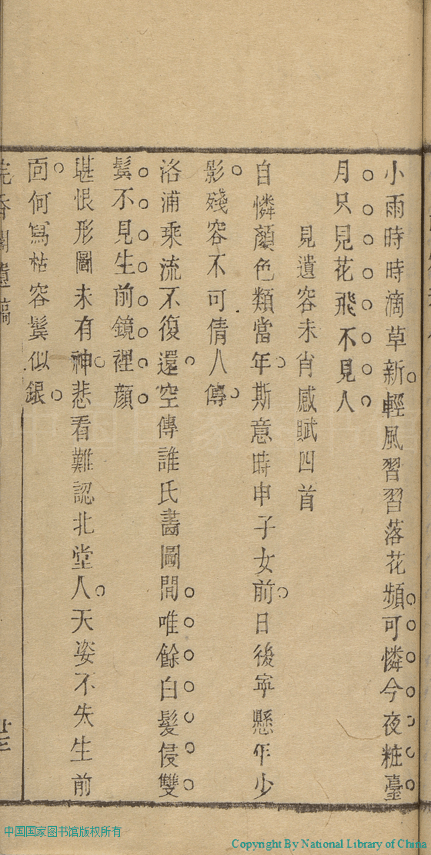 小雨時時滴草新輕風習習落花頻可憐今夜粧臺
月只見花飛不見人
見遺容未肖感賦四首
自憐顏色類當年斯意時申子女前日後寧懸年少
影殘容不可倩人傳
洛浦乘流不復還空傳誰氏畵圖間唯餘白髮侵雙
鬂不見生前鏡裡顏
堪恨形圖未有神悲看難認北堂人天姿不失生前
面何寫枯容鬂似銀
中国国家图书馆版权所有
Copyright By National Library of China